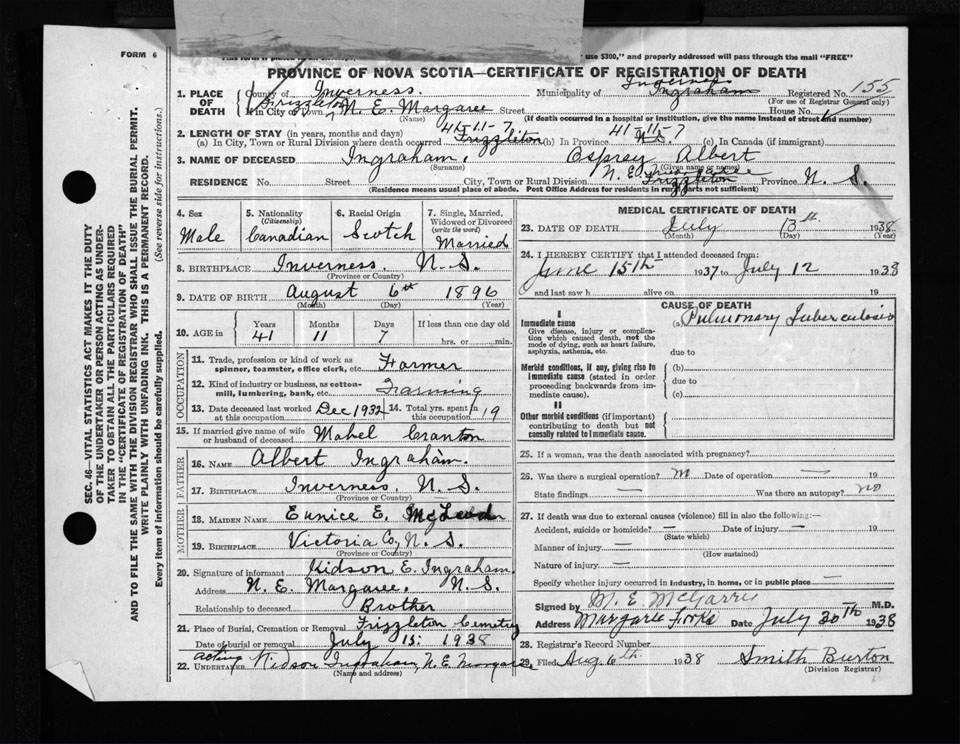 FORM 6
use $300," and properly addressed will pass through the mail "FREE"
PROVINCE OF NOVA SCOTIA—CERTIFICATE OF REGISTRATION OF DEATH
1. PLACE OF DEATH County of Inverness. Municipality of Inverness Ingraham Registered No. 155
(For use of Registrar General only)
If in City or Town, Frizzleton N. E. Margaree Street House No.
(Name) (If death occurred in a hospital or institution, give the name instead of street and number)
2. LENGTH OF STAY (in years, months and days)
(a) In City, Town or Rural Division where death occurred 41-11-7 Frizzleton (b) In Province 41-11-7 N.S. (c) In Canada (if immigrant)
3. NAME OF DECEASED Ingraham, Osprey Albert
(Surname) (Given name or names)
RESIDENCE No. Street City, Town or Rural Division N. E. Margaree Frizzleton Province N. S.
(Residence means usual place of abode. Post Office Address for residents in rural parts not sufficient)
4. Sex Male
5. Nationality (Citizenship) Canadian
6. Racial Origin Scotch
7. Single, Married, Widowed or Divorced (write the word) Married
8. BIRTHPLACE Inverness, N. S.
(Province or Country)
9. DATE OF BIRTH August 6th 1896
(Month) (Day) (Year)
10. AGE in Years 41 Months 11 Days 7 If less than one day old hrs. or min.
OCCUPATION
11. Trade, profession or kind of work as spinner, teamster, office clerk, etc. Farmer
12. Kind of industry or business, as cotton-mill, lumbering, bank, etc. Farming
13. Date deceased last worked at this occupation Dec 1932
14. Total yrs. spent in this occupation 19
15. If married give name of wife or husband of deceased Mabel Cranton
FATHER
16. NAME Albert Ingraham.
17. BIRTHPLACE Inverness, N. S.
(Province or Country)
MOTHER
18. MAIDEN NAME Eunice E. McLeod
19. BIRTHPLACE Victoria Co, N. S.
(Province or Country)
20. Signature of informant Kidson E. Ingraham.
Address N. E. Margaree, N. S.
Relationship to deceased Brother
21. Place of Burial, Cremation or Removal Frizzleton Cemetery
Date of burial or removal July 15. 1938
22. Acting UNDERTAKER Kidson Ingraham, N. E. Margaree
(Name and address)
MEDICAL CERTIFICATE OF DEATH
23. DATE OF DEATH July 13th 1938
(Month) (Day) (Year)
24. I HEREBY CERTIFY that I attended deceased from:
June 15th 1937 to July 12 1938
and last saw h alive on 19
CAUSE OF DEATH
I
Immediate cause
Give disease, injury or complication which caused death, not the mode of dying, such as heart failure, asphyxia, asthenia, etc.
(a) Pulmonary Tuberculosis
due to
Morbid conditions, if any, giving rise to immediate cause (stated in order proceeding backwards from immediate cause).
(b)
due to
(c)
II
Other morbid conditions (if important) contributing to death but not causally related to immediate cause.
25. If a woman, was the death associated with pregnancy?
26. Was there a surgical operation? no Date of operation — 19
State findings — Was there an autopsy? no
27. If death was due to external causes (violence) fill in also the following:—
Accident, suicide or homicide? — Date of injury — 19
(State which)
Manner of injury —
(How sustained)
Nature of injury —
Specify whether injury occurred in industry, in home, or in public place —
Signed by M. E. McGarry M.D.
Address Margaree Forks Date July 20th 1938
28. Registrar's Record Number
29. Filed Aug 6th 1938 Smith Burton
(Division Registrar)
SEC. 46—VITAL STATISTICS ACT MAKES IT THE DUTY
OF THE UNDERTAKER OR PERSON ACTING AS UNDER-
TAKER TO OBTAIN ALL THE PARTICULARS REQUIRED
IN THE "CERTIFICATE OF REGISTRATION OF DEATH"
AND TO FILE THE SAME WITH THE DIVISION REGISTRAR WHO SHALL ISSUE THE BURIAL PERMIT.
WRITE PLAINLY WITH UNFADING INK. THIS IS A PERMANENT RECORD.
Every item of information should be carefully supplied. (See reverse side for instructions.)